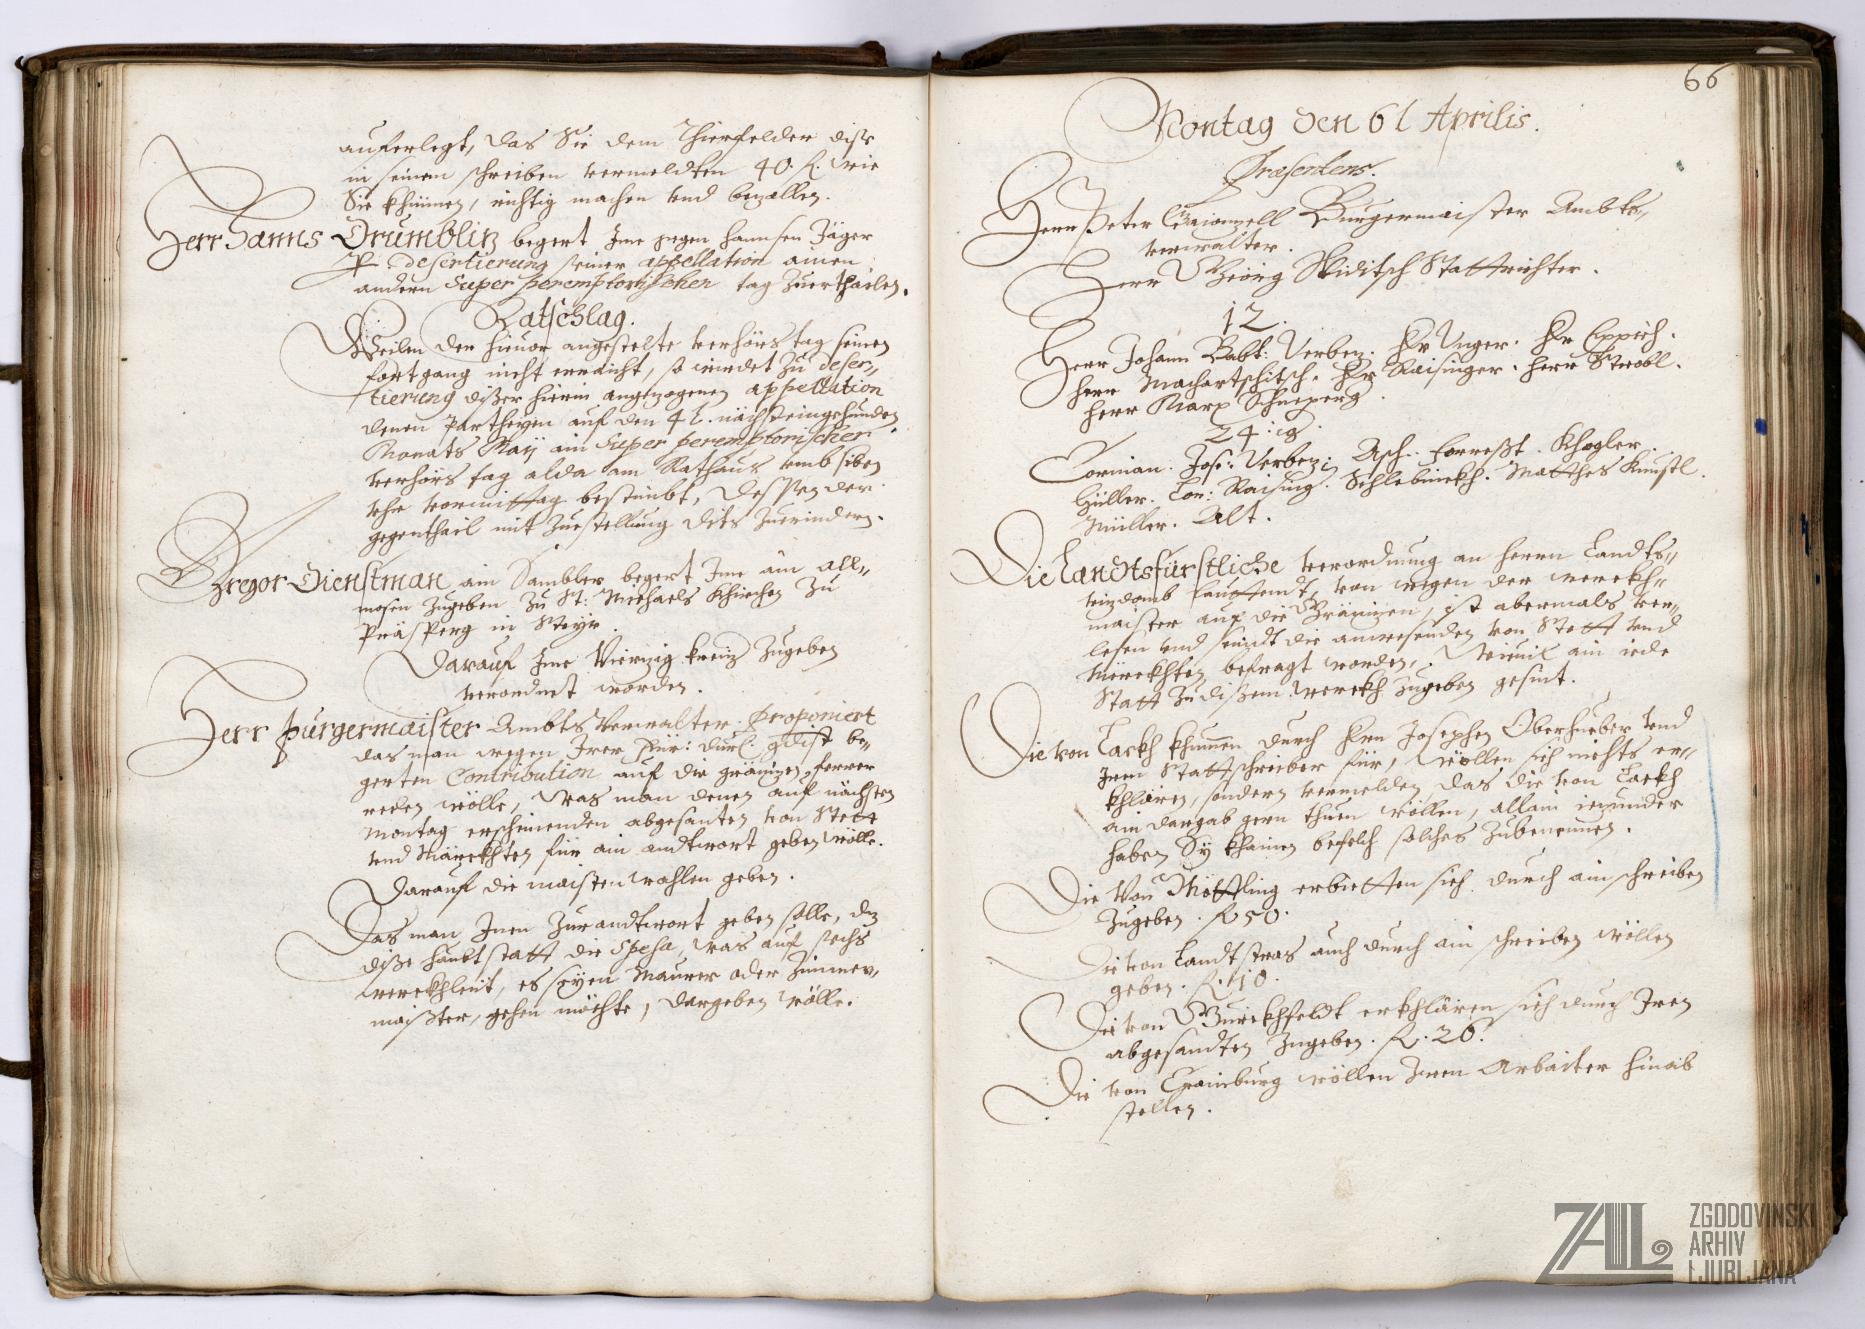 auferlegt, das Sie dem Thierfelder diße
in seinem schreiben vermeldten 40. f. wie
Sie khünnen, richtig machen vnd bezallen.
Herr Hanns Drumbliz begert Ime gegen Hannsen Jäger
desertierung seiner appellation ainen
andern Super peremptorischen tag zuerthailen.
Ratschlag.
Weilen der hieuor angestelte verhörs tag seinen
fortgang nicht erraicht, so wirdet zu deser„
tierung dißer hierin angezogenen appellation
denen Partheyen auf den 4 t. nächsteingehunden
Monats Maÿ ain Super peremptorischer
verhörs tag alda am Rathaus vmb siben
vhr vormittag bestimbt, dessen der
gegenthail mit Zuestellung dits Zuerindern.
Gregor Dienstman ain Sambler begert Ime ain all„
mosen Zugeben Zu St: Michaels Khirchen Zu
Präsperg in Steyr.
Darauf Ime Vierzig kreiz Zugeben
verordnet worden.
Herr Burgermaister Ambts Verwalter Proponiert
das man wegen Irer Für: Durl: gdist be„
gerten Contribution auf die gränizen, ferrer
reden wölle, was man denen auf nächsten
Montag erscheinenden abgesanten von Stett
vnd Märckhten für ain andtwort geben wölle.
Darauf die maisten wahlen geben.
Das man Inen Zur andtwort geben solle, dz
diße haubtstatt die Spesa, was auf sechs
werckhleüt, es seyen Maurer oder Zimmer„
maister, gehen möchte, dargeben wölle.
66
Montag den 6 t Aprilis.
Præsentens.
Herr Peter Burgermaister Ambts„
verwalter.
Herr Georg Viditsch Stattrichter.
12.
Herr Johann Babt: Verbez. Hr Vnger. Hr Eppich.
Herr Machartschitsch. Hr Raisinger. Herr Strobl.
Herr Marx Schneperg.
24:ig.
Cornian. Jose: Verbez. Asch. Forrest. Khogler.
Hüller. Con: Raising. Schlebinickh. Matthes Kunstl.
Müller. Alt.
Die Landtsfürstliche verordnung an Herrn Landts„
vizdomb lauttendt, von wegen der werckh„
maister auf die Gränizen, ist abermals ver„
lesen vnd seindt die anwesenden von Stett vnd
Märckhten befragt worden, wieuil ain iede
Statt Zu dißem werckh Zugeben gesint.
Die von Lackh khummen durch Hrn Josephen Oberhueber vnd
Irem Stattschreiber für, wöllen sich nichts er„
khlären, sondern vermelden, das die von Lackh
ain dargab gern thuen wöllen, allain iezunder
haben Sy khainen befelch solches Zubenennen.
Die Von Möttling erbietten sich durch ain schreiben
Zugeben. f. 50.
Die von Landtstras auch durch ain schreiben wöllen
geben. f. 10.
Die von Gurckhfeldt erkhlären sich durch Iren
abgesandten Zugeben. f. 26.
Die von Crainburg wöllen Iren Arbaiter hinab
stellen.
ZAL
ZGODOVINSKI
ARHIV
LJUBLJANA